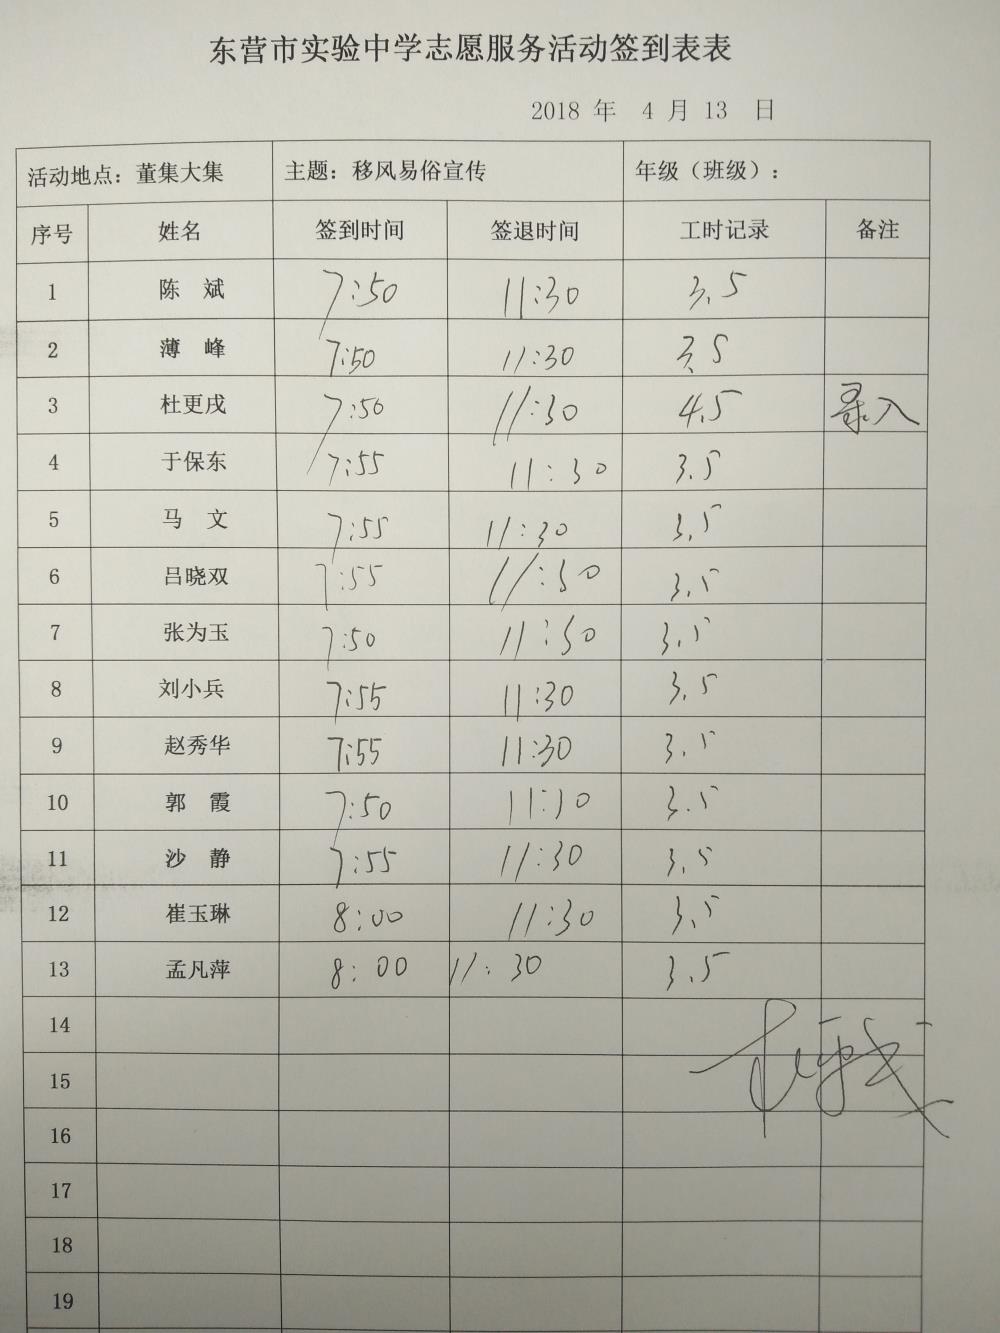 东营市实验中学志愿服务活动签到表表
2018 年 4 月 13 日
活动地点：董集大集 主题：移风易俗宣传 年级（班级）：
序号 姓名 签到时间 签退时间 工时记录 备注
1 陈 斌 7:50 11:30 3.5
2 薄 峰 7:50 11:30 3.5
3 杜更戌 7:50 11:30 4.5 录入
4 于保东 7:55 11:30 3.5
5 马 文 7:55 11:30 3.5
6 吕晓双 7:55 11:30 3.5
7 张为玉 7:50 11:30 3.5
8 刘小兵 7:55 11:30 3.5
9 赵秀华 7:55 11:30 3.5
10 郭 霞 7:50 11:30 3.5
11 沙 静 7:55 11:30 3.5
12 崔玉琳 8:00 11:30 3.5
13 孟凡萍 8:00 11:30 3.5
14
15
16
17
18
19